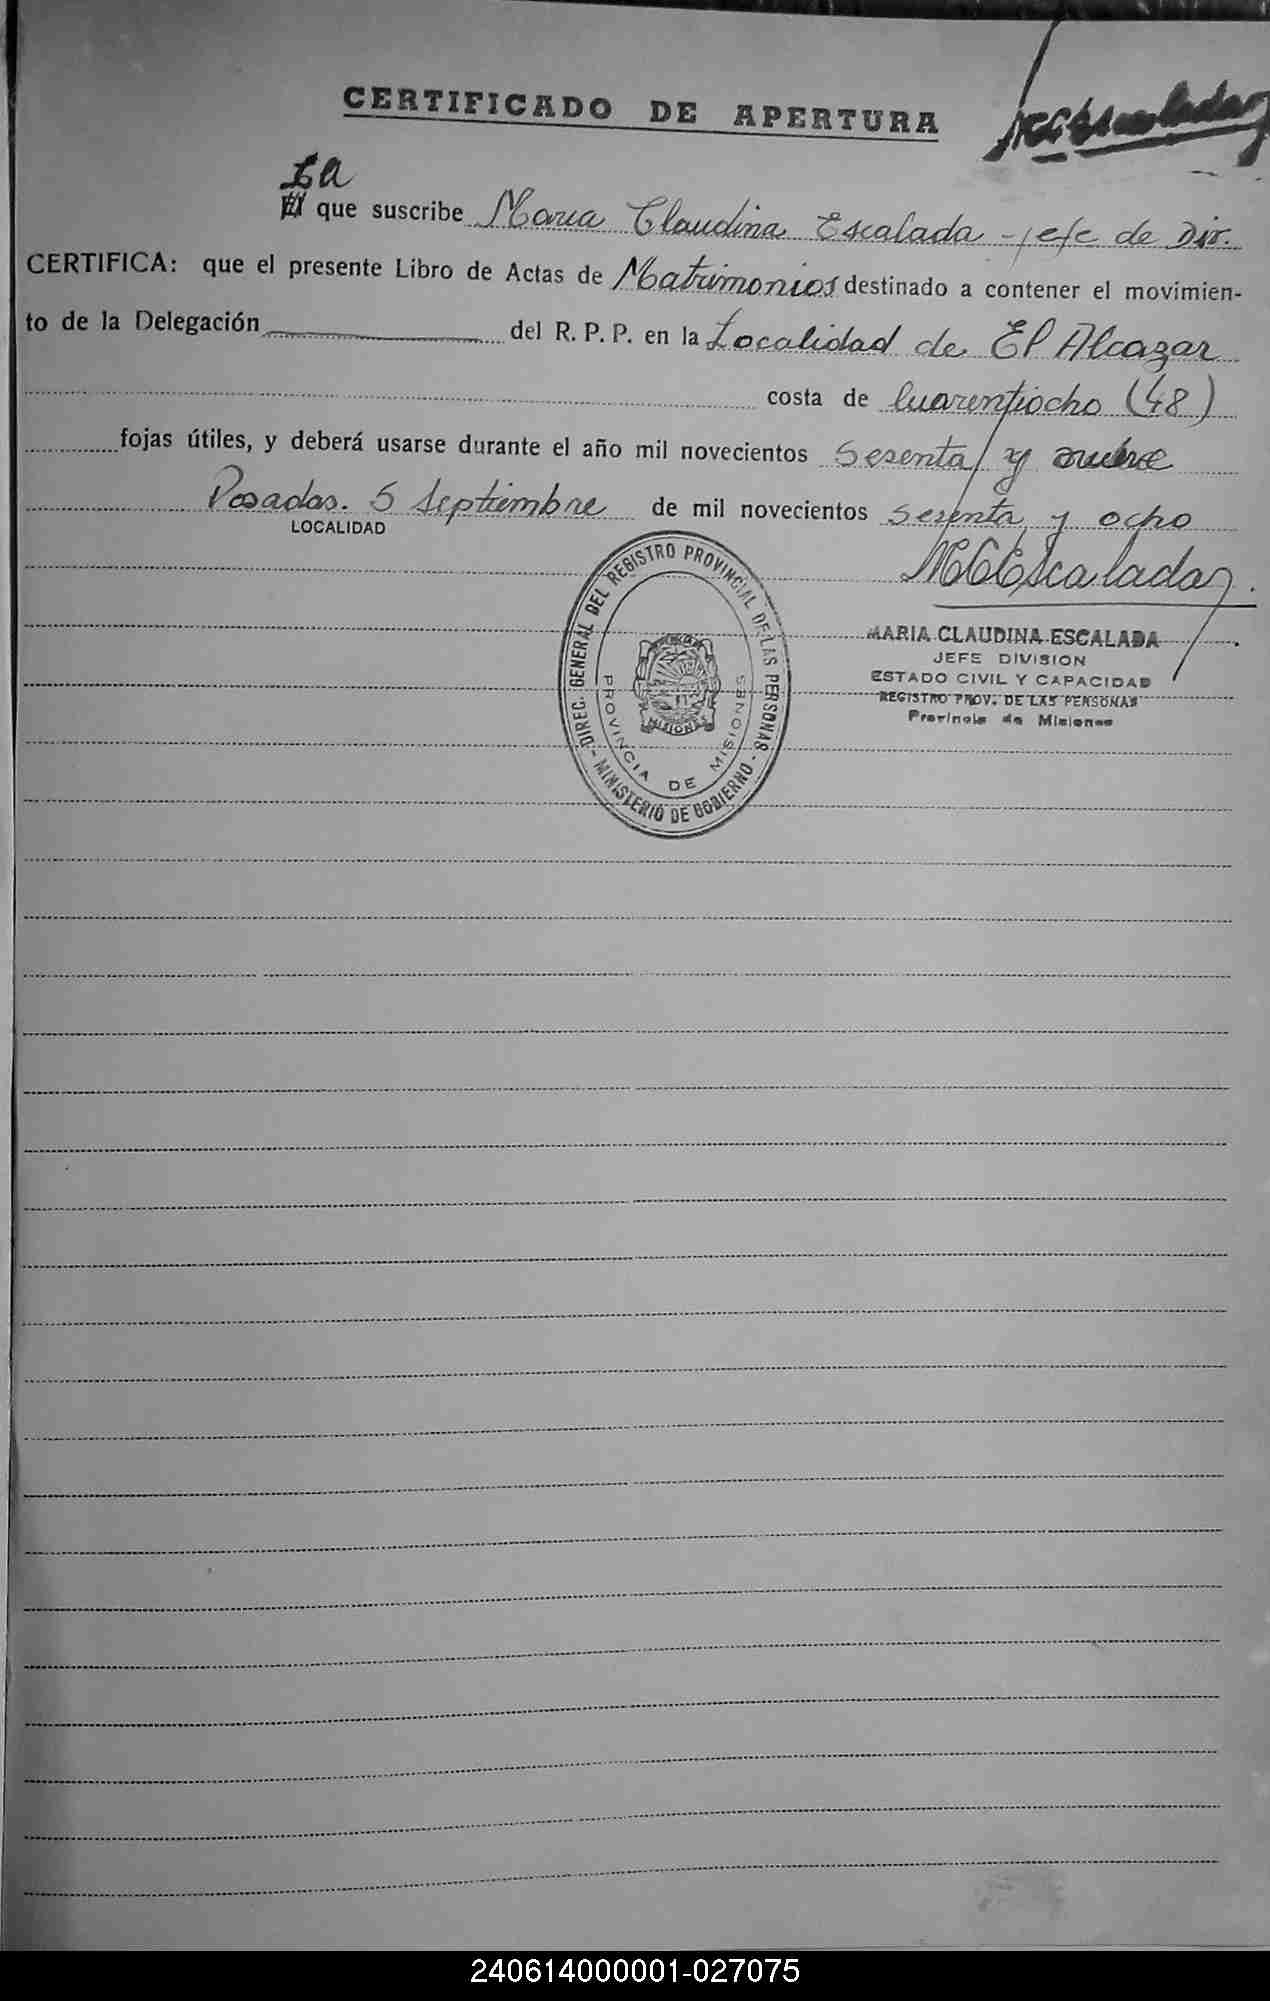 CERTIFICADO DE APERTURA
La
El que suscribe Maria Claudina Escalada - jefe de Div.
CERTIFICA: que el presente Libro de Actas de Matrimonios destinado a contener el movimien-
to de la Delegación del R. P. P. en la Localidad de El Alcazar
costa de Cuarentiocho (48)
fojas útiles, y deberá usarse durante el año mil novecientos sesenta y nueve
Posadas. 5 Septiembre de mil novecientos sesenta y ocho
LOCALIDAD
MCEscalada
DIREC. GENERAL DEL REGISTRO PROVINCIAL DE LAS PERSONAS - MINISTERIO DE GOBIERNO -
PROVINCIA DE MISIONES
MISIONES
MARIA CLAUDINA ESCALADA
JEFE DIVISION
ESTADO CIVIL Y CAPACIDAD
REGISTRO PROV. DE LAS PERSONAS
Provincia de Misiones
240614000001-027075